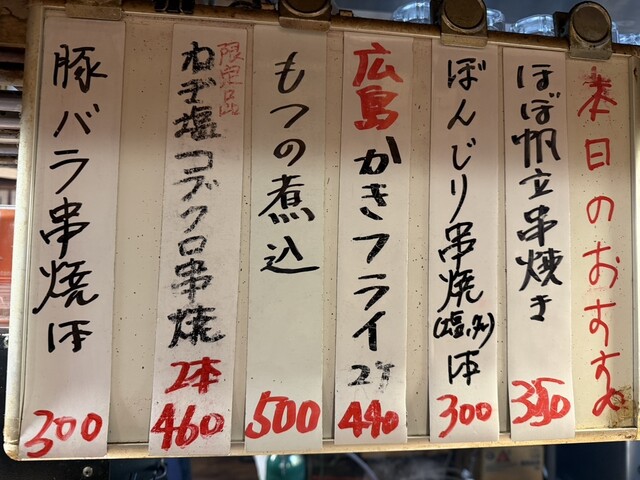 本日のおすすめ
ほぼ帆立串焼き
350
ぼんじり串焼(塩、タレ)1本
300
広島かきフライ2ケ
440
もつの煮込
500
限定品
ねぎ塩コブクロ串焼
2本
460
豚バラ串焼1本
300